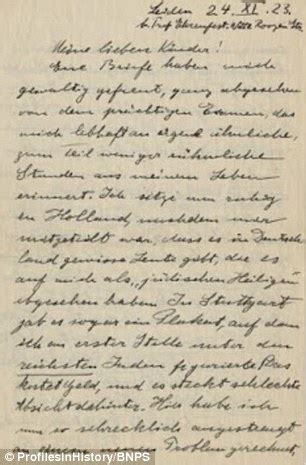 Leiden 24. XI. 23.
b. Prof Ehrenfest. Witte Roozen Str.
Meine lieben Kinder!
Eure Briefe haben mich
gewaltig gefreut, ganz abgesehen
von dem prächtigen Examen, das
mich lebhaft an irgend ähnliche,
zum teil weniger rühmliche
Stunden aus meinem Leben
erinnert. Ich sitze nun ruhig
in Holland, nachdem mir
mitgeteilt war, dass es in Deutsch-
land gewisse Leute gibt, die es
auf mich als „jüdischen Heiligen"
abgesehen haben. In Stuttgart
gab es sogar ein Plakat, auf dem
ich an erster Stelle unter den
reichsten Juden figurierte. Das
kostet Geld, und es steckt schlechte
Absicht dahinter. Hier habe ich
nun so schrecklich angestrengt
Problem gerechnet,
© ProfilesInHistory/BNPS